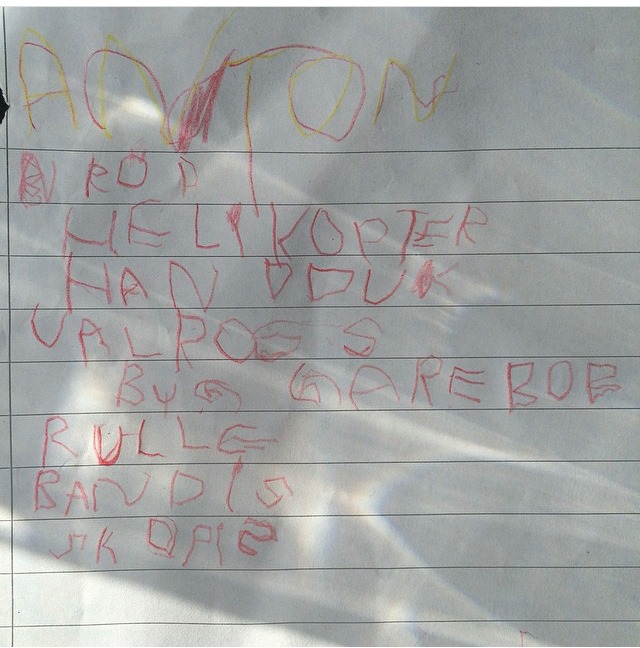 ANTON
BRÖD
HELIKOPTER
HANDDUK
VALROSS
BYG GAREBOB
RULLE
BANDIS
SKOPIS